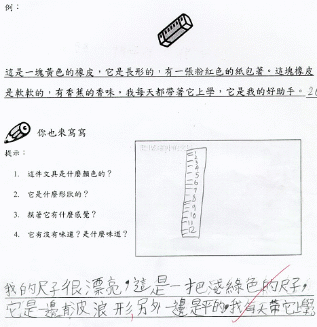 例：
這是一塊黃色的橡皮，它是長形的，有一張粉紅色的紙包著。這塊橡皮
是軟軟的，有香蕉的香味。我每天都帶著它上學，它是我的好助手。
你也來寫寫
提示：
1. 這件文具是什麼顏色的？
2. 它是什麼形狀的？
3. 摸著它有什麼感覺？
4. 它有沒有味道？是什麼味道？
我的尺子很漂亮，這是一把淺綠色的尺子，
它是一邊有波浪形，另外一邊是平的，我每天帶它上學